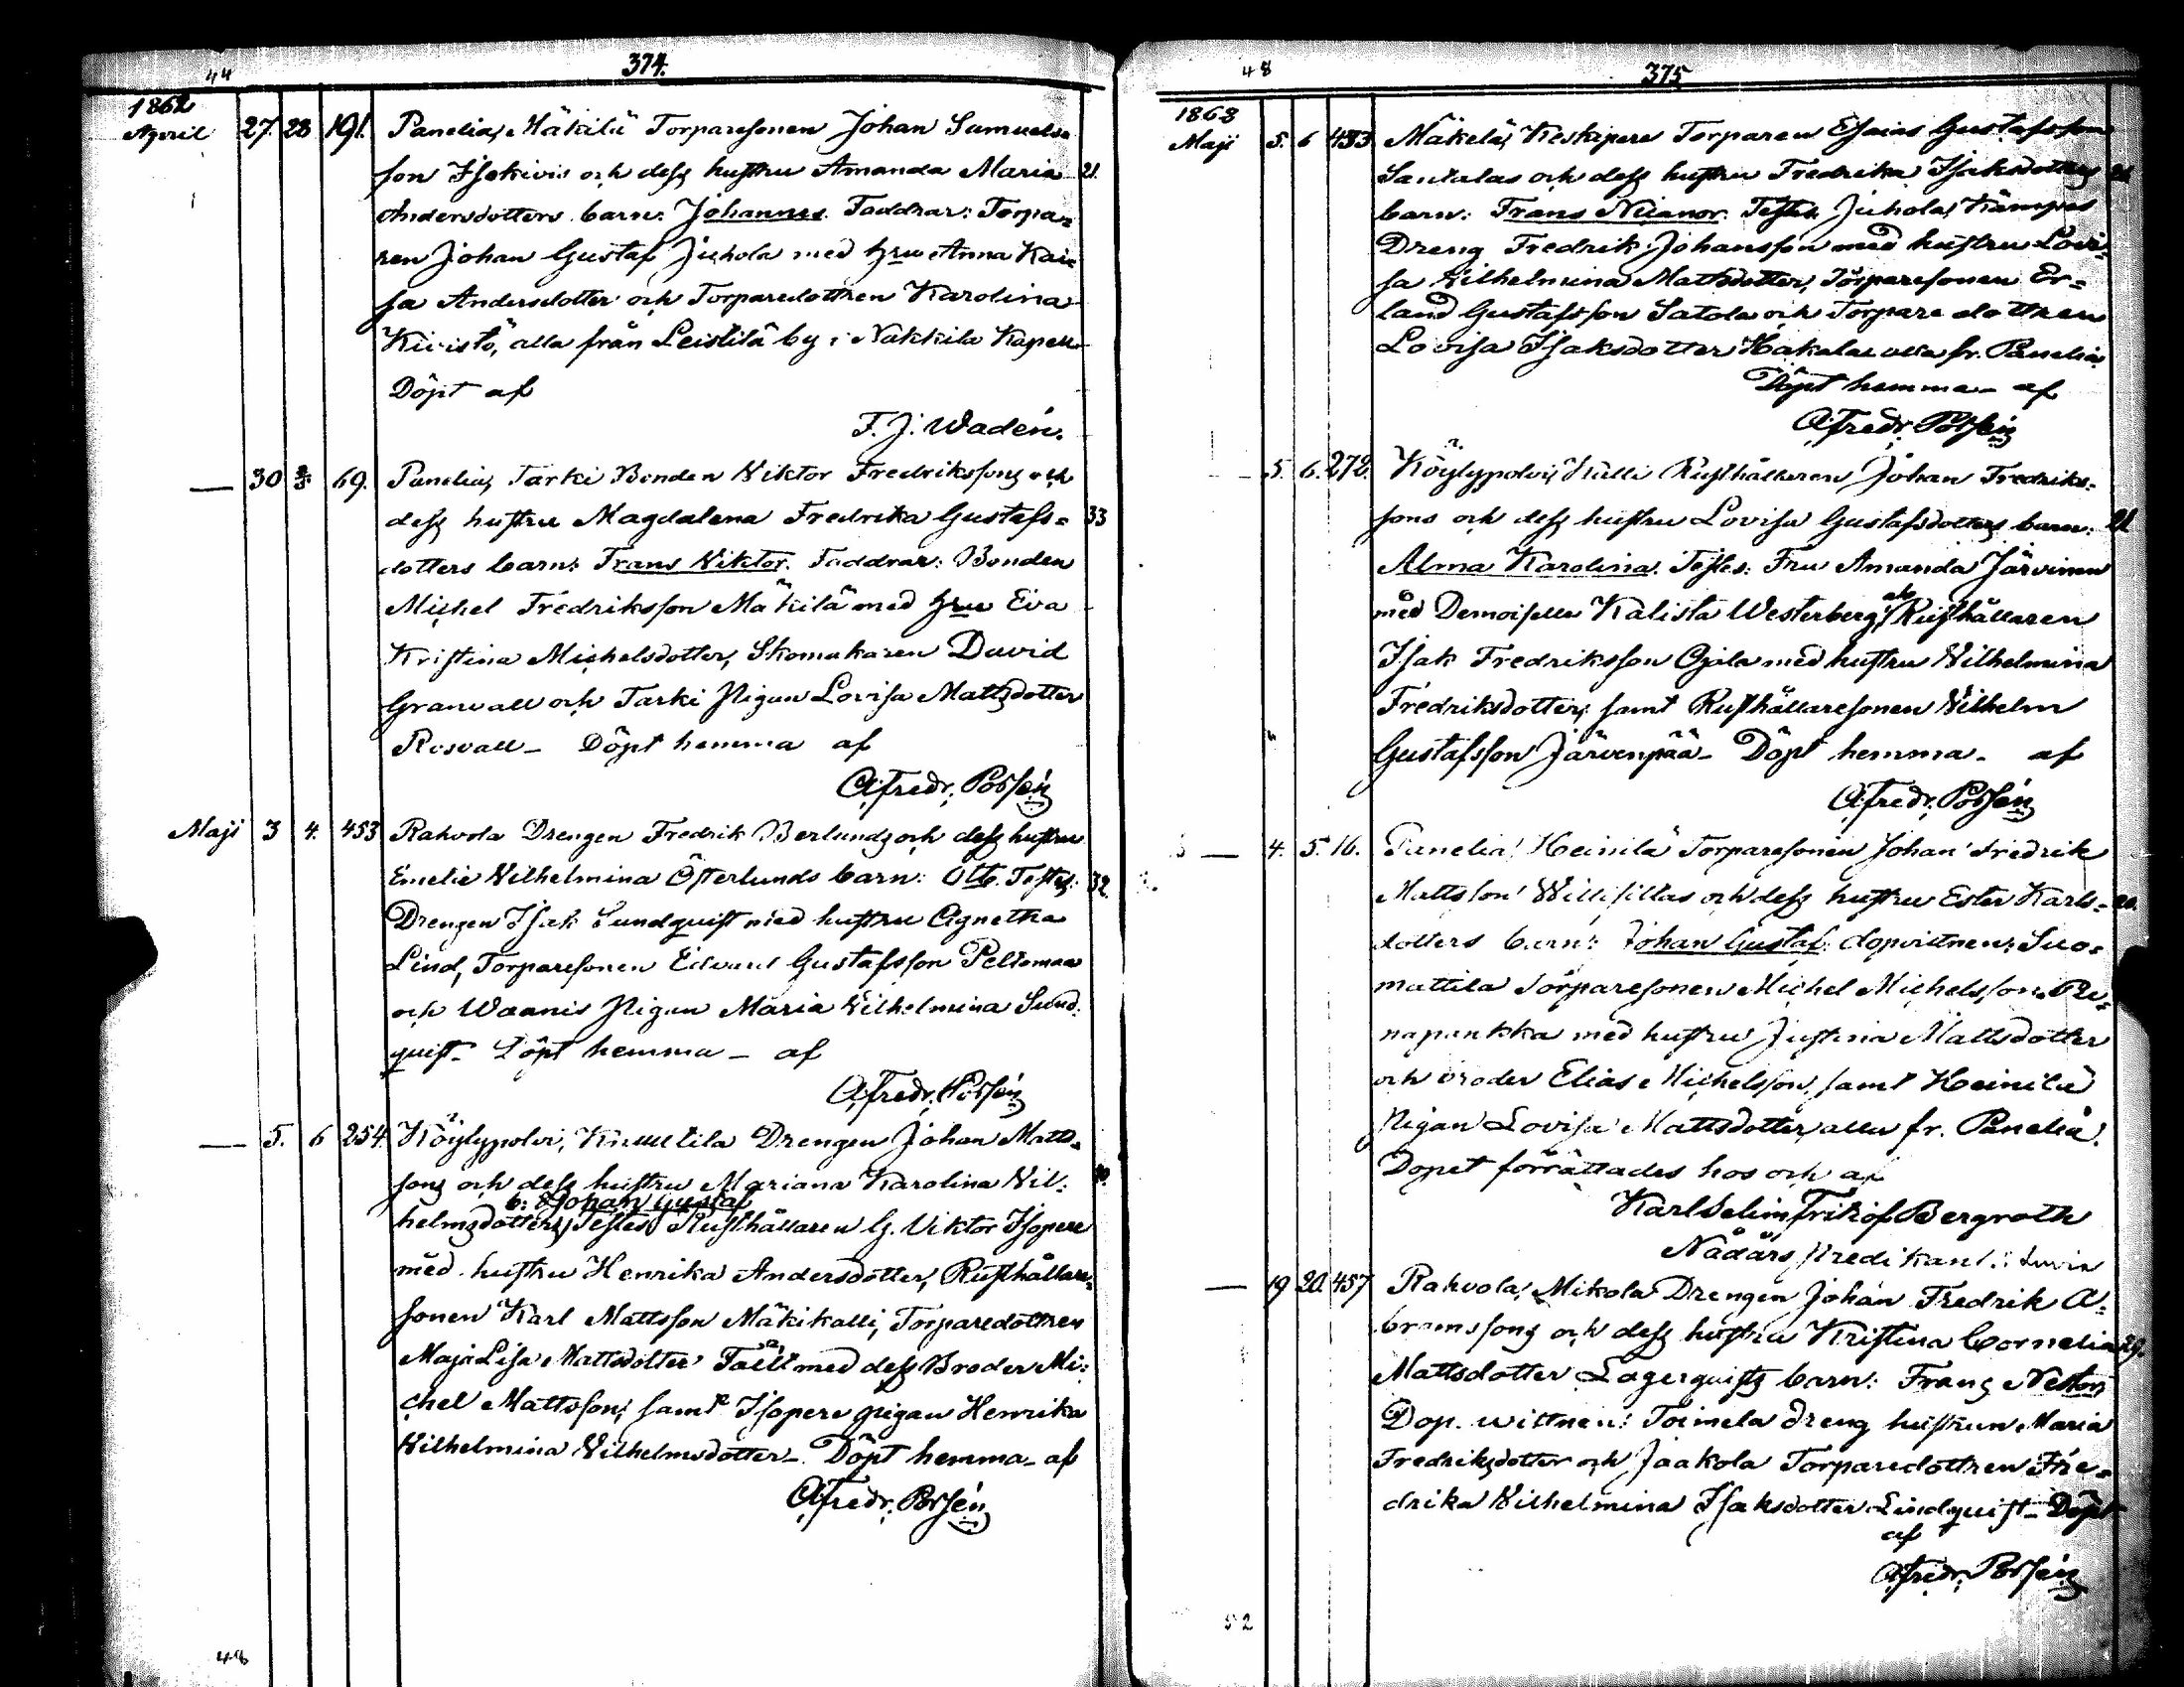 44
374.
1862
April 27. 28 191. Panelia, Mäkilä Torparesonen Johan Samuels=
son Isokivis och dess hustru Amanda Maria 21.
Andersdotters barn: Johannes. Faddrar: Torpa=
ren Johan Gustaf Juhola med hru Anna Kai=
sa Andersdotter och Torparedottren Karolina
Kivistö, alla från Leistilä by i Nakkila Kapell
Döpt af
F. J. Wadén.
— 30 69. Panelia, Tarki Bonden Viktor Fredrikssons och
dess hustru Magdalena Fredrika Gustafs= 33
dotters barn: Frans Viktor. Faddrar: Bonden
Michel Fredriksson Mäkilä med hru Eva
Kristina Michelsdotter, Skomakaren David
Granvall och Tarki Pigan Lovisa Mattsdotter
Rosvall – Döpt hemma af
Alfredr. Porsén
Maji 3 4. 453 Rahvola Drengen Fredrik Berlunds och dess hustru
Emelie Vilhelmina Österlunds barn: Otto. Testes: 32.
Drengen Isak Sundquist med hustru Agnetha
Lind, Torparesonen Edvard Gustafsson Peltomaa
och Waanis Pigan Maria Vilhelmina Sund=
quist – Döpt hemma – af
Alfredr. Porsén
— 5. 6 254. Köylypolvi, Knuutila Drengen Johan Matts=
sons och dess hustru Mariana Karolina Vil=
b: Johan Gustaf
helmsdotters, Testes Rusthållaren G. Viktor Isopere
med hustru Henrika Andersdotter, Rusthållare=
sonen Karl Mattsson Mäkikalli, Torparedottren
Maja Lisa Mattsdotter med dess Broder Mi=
chel Mattsson, samt Isopere pigan Henrika
Wilhelmina Vilhelmsdotter – Döpt hemma – af
Alfredr. Porsén
48
48
375
1862
Maji 5. 6 433 Mäkelä, Keskipere Torparen Esaias Gustafsson
Santalas och dess hustru Fredrika Isaksdotters
barn: Frans Nicanor. Testes: Juhola, Kämpes
Dreng Fredrik Johansson med hustru Lovi=
sa Vilhelmina Mattsdotter, Torparesonen Er=
land Gustafsson Satola och Torpare dottren
Lovisa Isaksdotter Hakala alla fr. Panelia.
Döpt hemma – af
Alfredr. Porsén
— 5. 6. 272. Köylypolvi, Kulli Rusthållaren Johan Fredriks=
sons och dess hustru Lovisa Gustafsdotters barn: 21
Alma Karolina. Testes: Fru Amanda Järvinen
med Demoiselle Kalista Westerberg, Rusthållaren
Isak Fredriksson Ojala med hustru Vilhelmina
Fredriksdotter, samt Rusthållaresonen Vilhelm
Gustafsson Järvenpää – Döpt hemma – af
Alfredr. Porsén
— 4. 5. 16. Panelia, Heinilä Torparesonen Johan Fredrik
Mattsson Willisillas och dess hustru Ester Karls=
dotters barn: Johan Gustaf: dopvittnen: Suo=
mattila Torparesonen Michel Michelsson Pu=
napankka med hustru Justina Mattsdotter
och broder Elias Michelsson, samt Heinilä
Pigan Lovisa Mattsdotter, alla fr. Panelia.
Dopet förrättades hos och af
Karl Selim Fritiof Bergroth
Nådårs predikant i Luvia
— 19 20. 457 Rahvola, Mikola Drengen Johan Fredrik A=
bramssons och dess hustru Kristina Cornelia 29.
Mattsdotter Lagerquists barn: Frans Nestor
Dop. wittnen: Toimela dreng hustrun Maria
Fredriksdotter och Jaakola Torparedottren Fre=
drika Vilhelmina Isaksdotter Lindquist – Döpt
af
Alfredr. Porsén
52